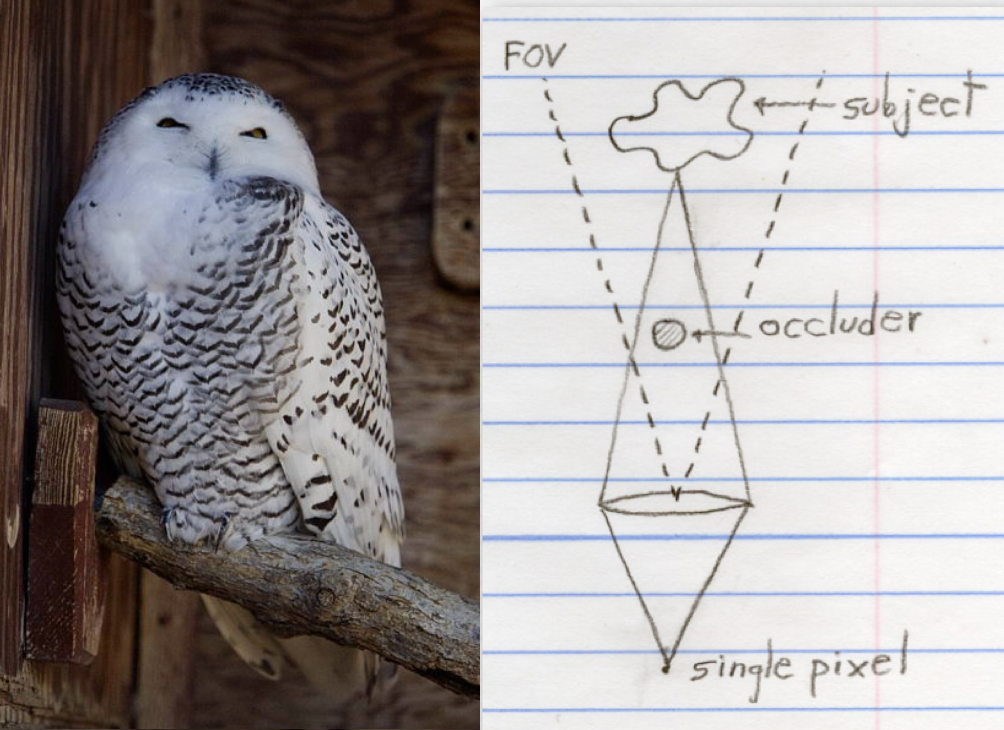 FOV
subject
occluder
single pixel